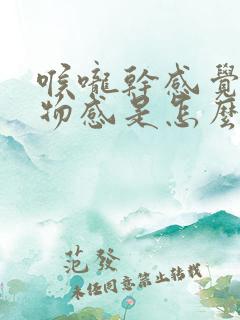 喉嚨幹感覺
物感是怎麼
范發
未经同意禁止转载